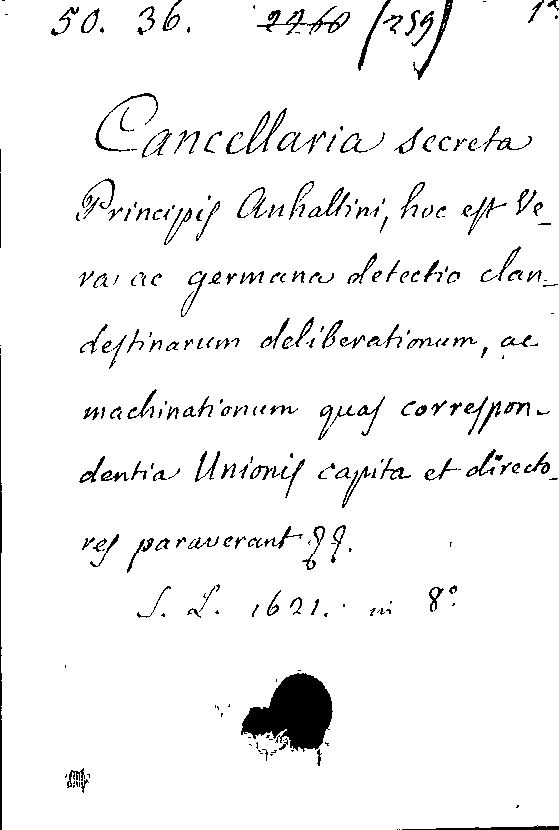 50. 36. 2768 (259) 1ª
Cancellaria secreta
Principis Anhaltini, hoc est Ve-
ra ac germana detectio clan-
destinarum deliberationum, ac
machinationum quas correspon-
dentia Unionis capita et directo-
res paraverant
S. L. 1621. in 8º